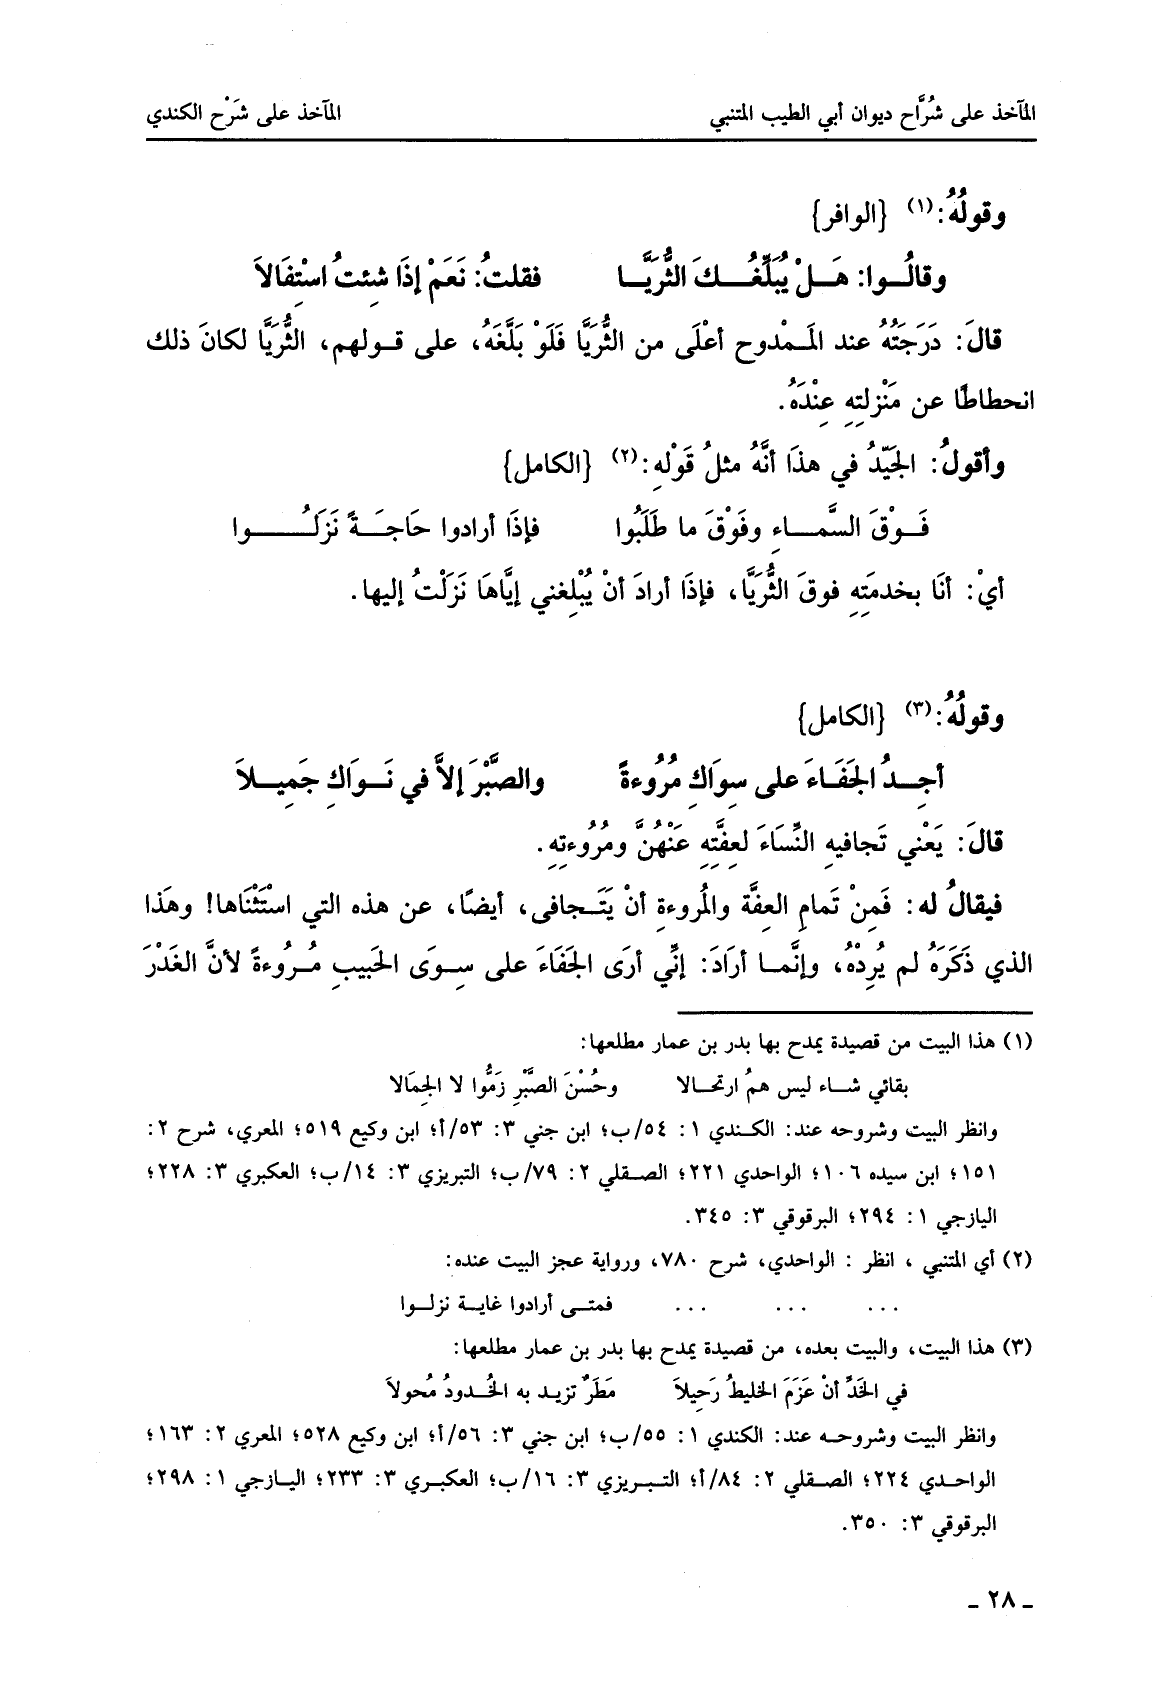 المآخذ على شُرَّاح ديوان أبي الطيب المتنبي المآخذ على شَرْح الكندي
وقولُهُ:(١) {الوافر}
وقالُـوا: هَـلْ يُبَلِّغُـكَ الثُّرَيَّـا فقلتُ: نَعَمْ إذَا شئتُ اسْتِفَالاَ
قالَ: دَرَجَتُهُ عند المَمْدوح أعْلَى من الثُّرَيَّا فَلَوْ بَلَّغَهُ، على قولهم، الثُّرَيَّا لكانَ ذلك
انحطاطًا عن مَنْزِلتِهِ عِنْدَهُ.
وأقولُ: الجَيِّدُ في هذَا أنَّهُ مثلُ قَوْلهِ:(٢) {الكامل}
فَـوْقَ السَّمـاءِ وفَوْقَ ما طَلَبُوا فإذَا أرادوا حَاجَـةً نَزَلُـوا
أيْ: أنَا بخدمتِهِ فوقَ الثُّرَيَّا، فإذَا أرادَ أنْ يُبْلِغني إيَّاهَا نَزَلْتُ إليها.
وقولُهُ:(٣) {الكامل}
أجِـدُ الجَفَـاءَ على سِوَاكِ مُرُوءةً والصَّبْرَ إلاَّ في نَـوَاكِ جَمِيـلاَ
قالَ: يَعْني تَجافيهِ النِّسَاءَ لعِفَّتِهِ عَنْهُنَّ ومُرُوءتِهِ.
فيقالُ له: فَمِنْ تَمامِ العِفَّة والمُروءةِ أنْ يَتَـجافى، أيضًا، عن هذه التي اسْتَثْنَاها! وهَذا
الذي ذَكَرَهُ لم يُرِدْهُ، وإنَّمـا أرَادَ: إنِّي أرَى الجَفَاءَ على سِوَى الحَبيبِ مُـرُوءةً لأنَّ الغَدْرَ
(١) هذا البيت من قصيدة يمدح بها بدر بن عمار مطلعها:
بقائي شـاء ليس همُ ارتحـالا وحُسْنَ الصَّبْرِ زَمُّوا لا الجِمَالا
وانظر البيت وشروحه عند: الكـندي ١: ٥٤/ب؛ ابن جني ٣: ٥٣/أ؛ ابن وكيع ٥١٩؛ المعري، شرح ٢:
١٥١؛ ابن سيده ١٠٦؛ الواحدي ٢٢١؛ الصقلي ٢: ٧٩/ب؛ التبريزي ٣: ١٤/ب؛ العكبري ٣: ٢٢٨؛
اليازجي ١: ٢٩٤؛ البرقوقي ٣: ٣٤٥.
(٢) أي المتنبي ، انظر : الواحدي، شرح ٧٨٠، ورواية عجز البيت عنده:
... ... ... فمتـى أرادوا غايـة نزلـوا
(٣) هذا البيت، والبيت بعده، من قصيدة يمدح بها بدر بن عمار مطلعها:
في الخَدِّ أنْ عَزَمَ الخليطُ رَحِيلاَ مَطَرٌ تزيـد به الخُـدودُ مُحولاَ
وانظر البيت وشروحـه عند: الكندي ١: ٥٥/ب؛ ابن جني ٣: ٥٦/أ؛ ابن وكيع ٥٢٨؛ المعري ٢: ١٦٣؛
الواحـدي ٢٢٤؛ الصـقلي ٢: ٨٤/أ؛ التـبريزي ٣: ١٦/ب؛ العكبـري ٣: ٢٣٣؛ اليـازجي ١: ٢٩٨؛
البرقوقي ٣: ٣٥٠.
ـ ٢٨ ـ